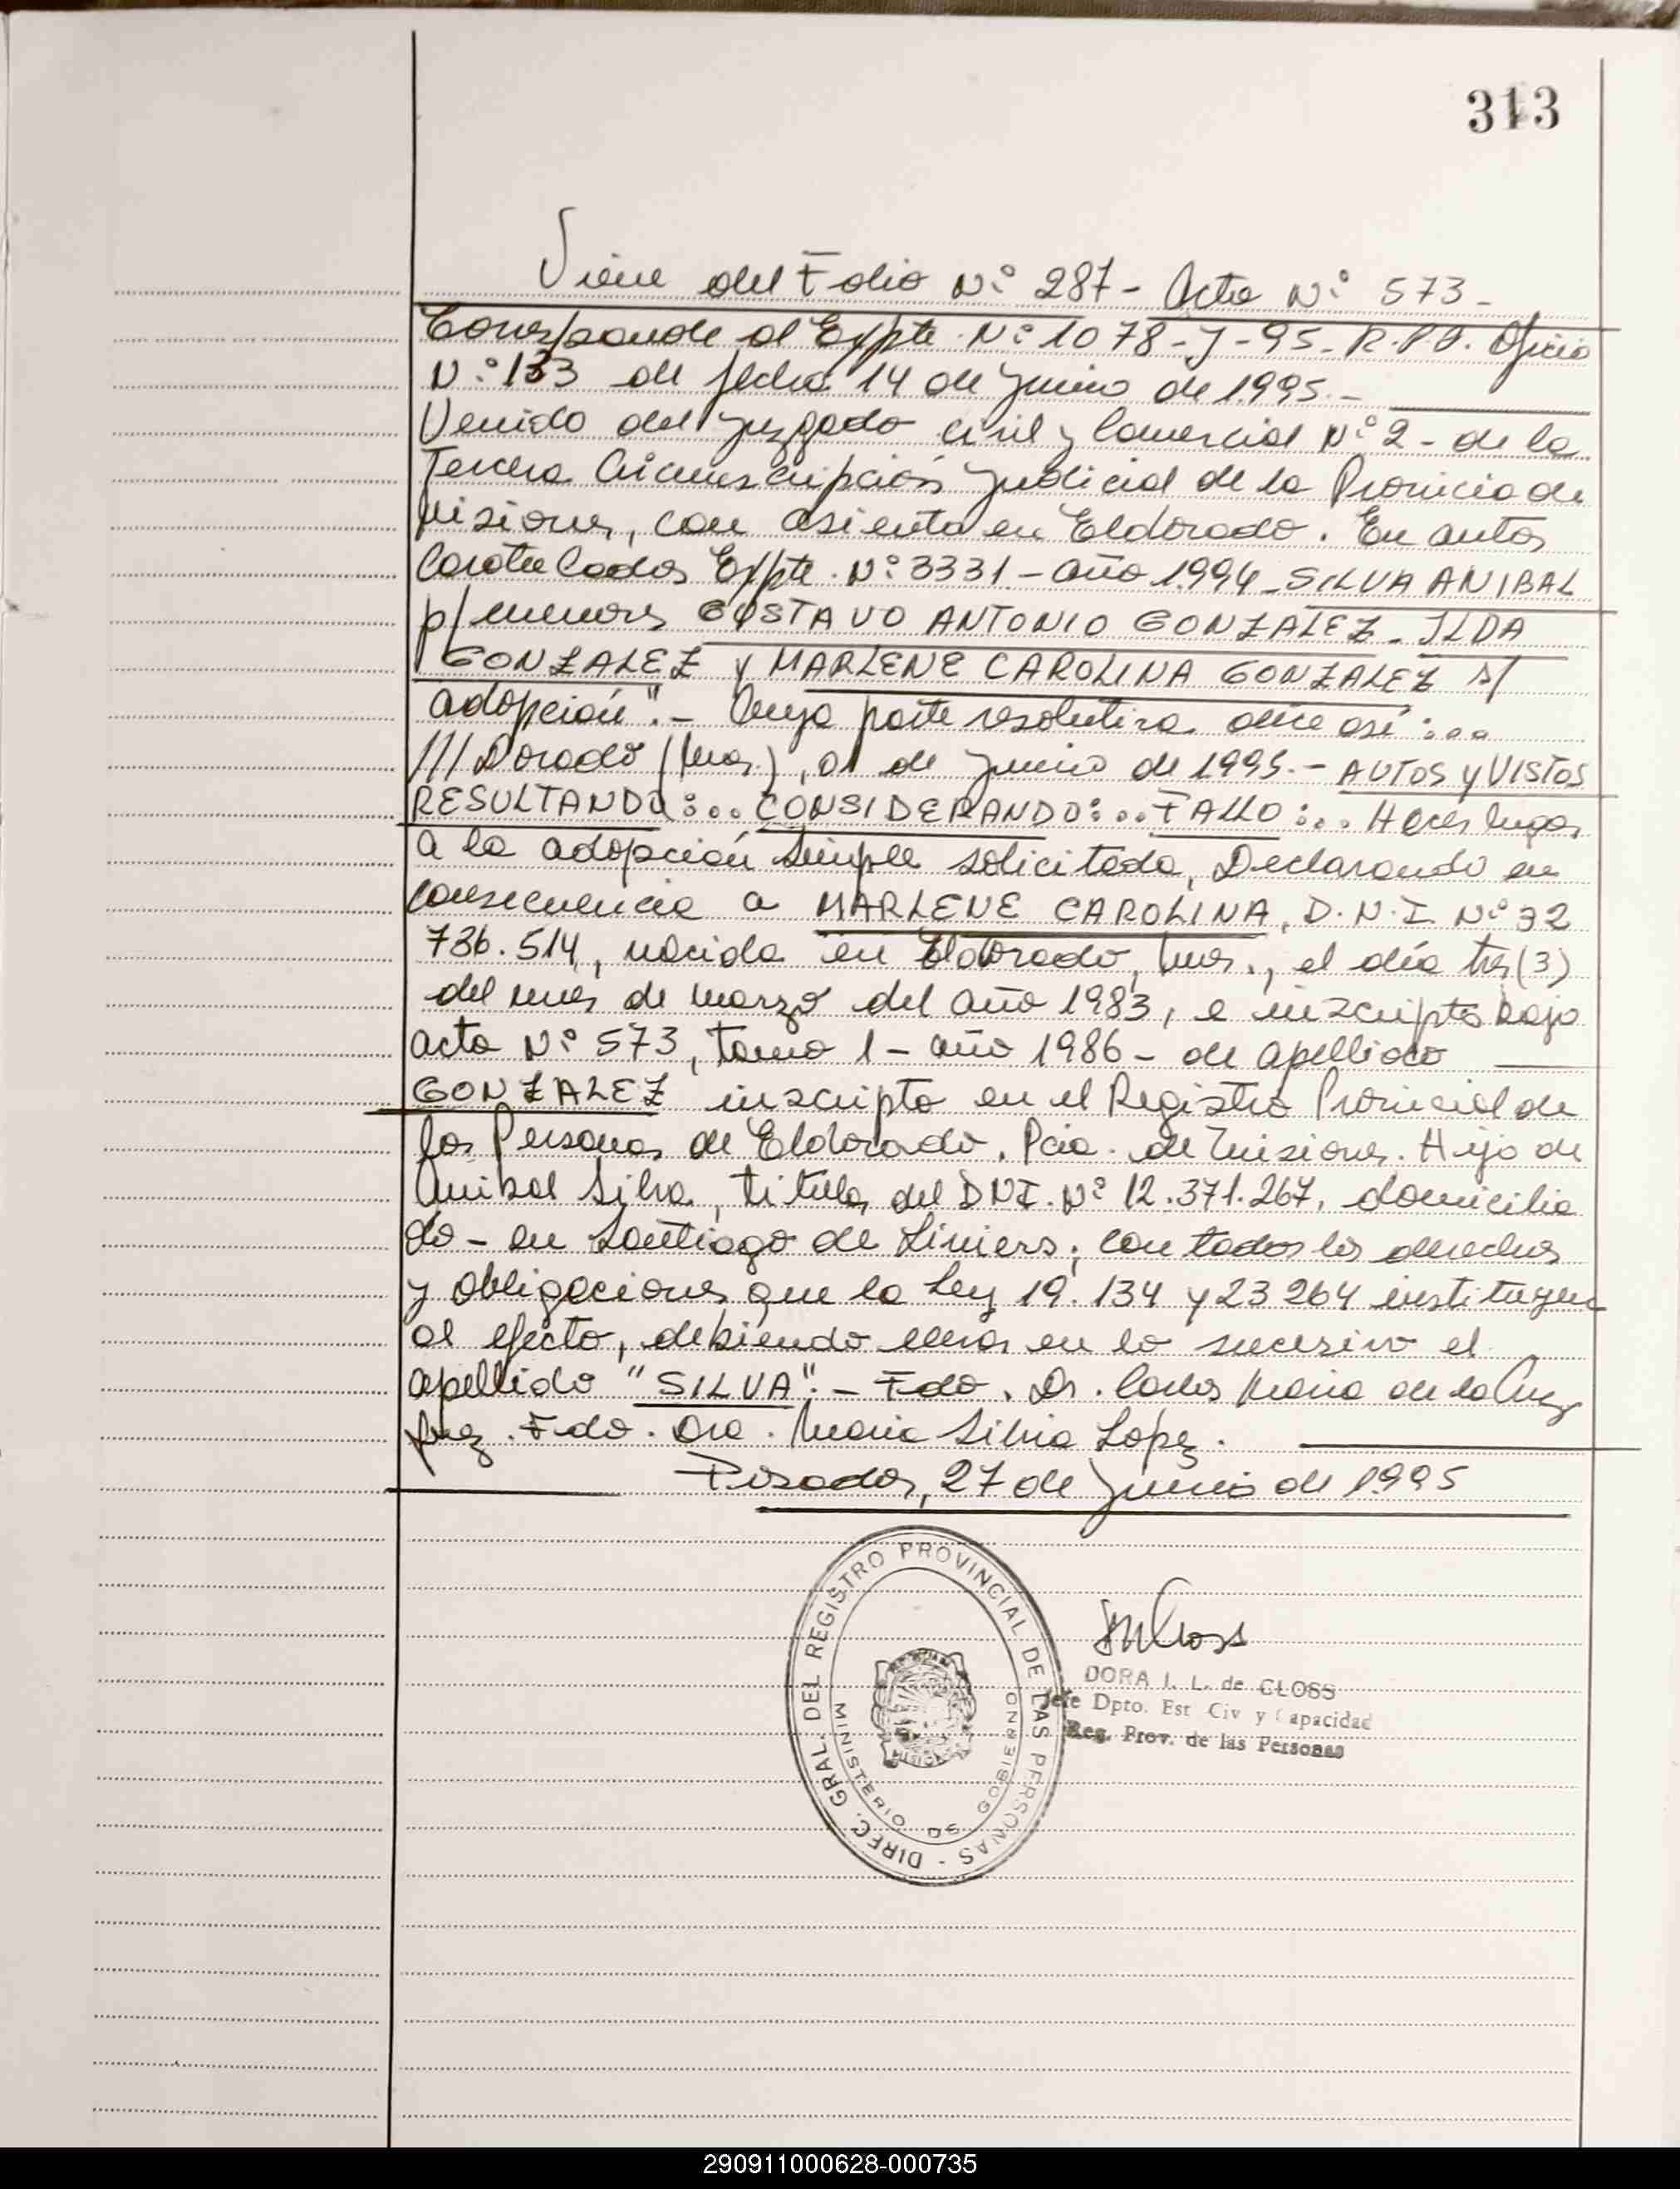 313
Viene del Folio N° 287 - Acta N° 573 -
Corresponde al Expte. N° 1078 - J - 95 - R.P.P. Oficio
N° 133 de fecha 14 de Junio de 1995. -
Venido del Juzgado Civil y Comercial N° 2 - de la
Tercera Circunscripción Judicial de la Provincia de
Misiones, con asiento en Eldorado. En autos
Caratulados Expte. N° 3331 - año 1994 - SILVA ANIBAL
p/menores GUSTAVO ANTONIO GONZALEZ - ILDA
GONZALEZ y MARLENE CAROLINA GONZALEZ s/
adopción". - Cuya parte resolutiva dice así:...
///Dorado (Mnes.), 01 de Junio de 1995. - AUTOS y VISTOS
RESULTANDO:... CONSIDERANDO:... FALLO:... Hacer lugar
a la adopción simple solicitada, Declarando en
consecuencia a MARLENE CAROLINA, D.N.I. N° 32
736.514, nacida en Eldorado, Mnes., el día tres (3)
del mes de marzo del año 1983, e inscripto bajo
acta N° 573, Tomo 1 - año 1986 - de apellido
GONZALEZ inscripto en el Registro Provincial de
las Personas de Eldorado. Pcia. de Misiones. Hijo de
Anibal Silva, titular del DNI. N° 12.371.267, domicilia
do - en Santiago de Liniers; con todos los derechos
y obligaciones que la Ley 19.134 y 23 264 instituyen
al efecto, debiendo llevar en lo sucesivo el
apellido "SILVA". - Fdo. Dr. Carlos Maria de la Cruz
Juez. Fdo. Dra. Maria Silvia Lopez.
Posadas, 27 de Junio de 1995
DIREC. GRAL. DEL REGISTRO PROVINCIAL DE LAS PERSONAS -
MINISTERIO DE GOBIERNO
DORA I. L. de CLOSS
Jefe Dpto. Est Civ y Capacidad
Reg. Prov. de las Personas
290911000628-000735